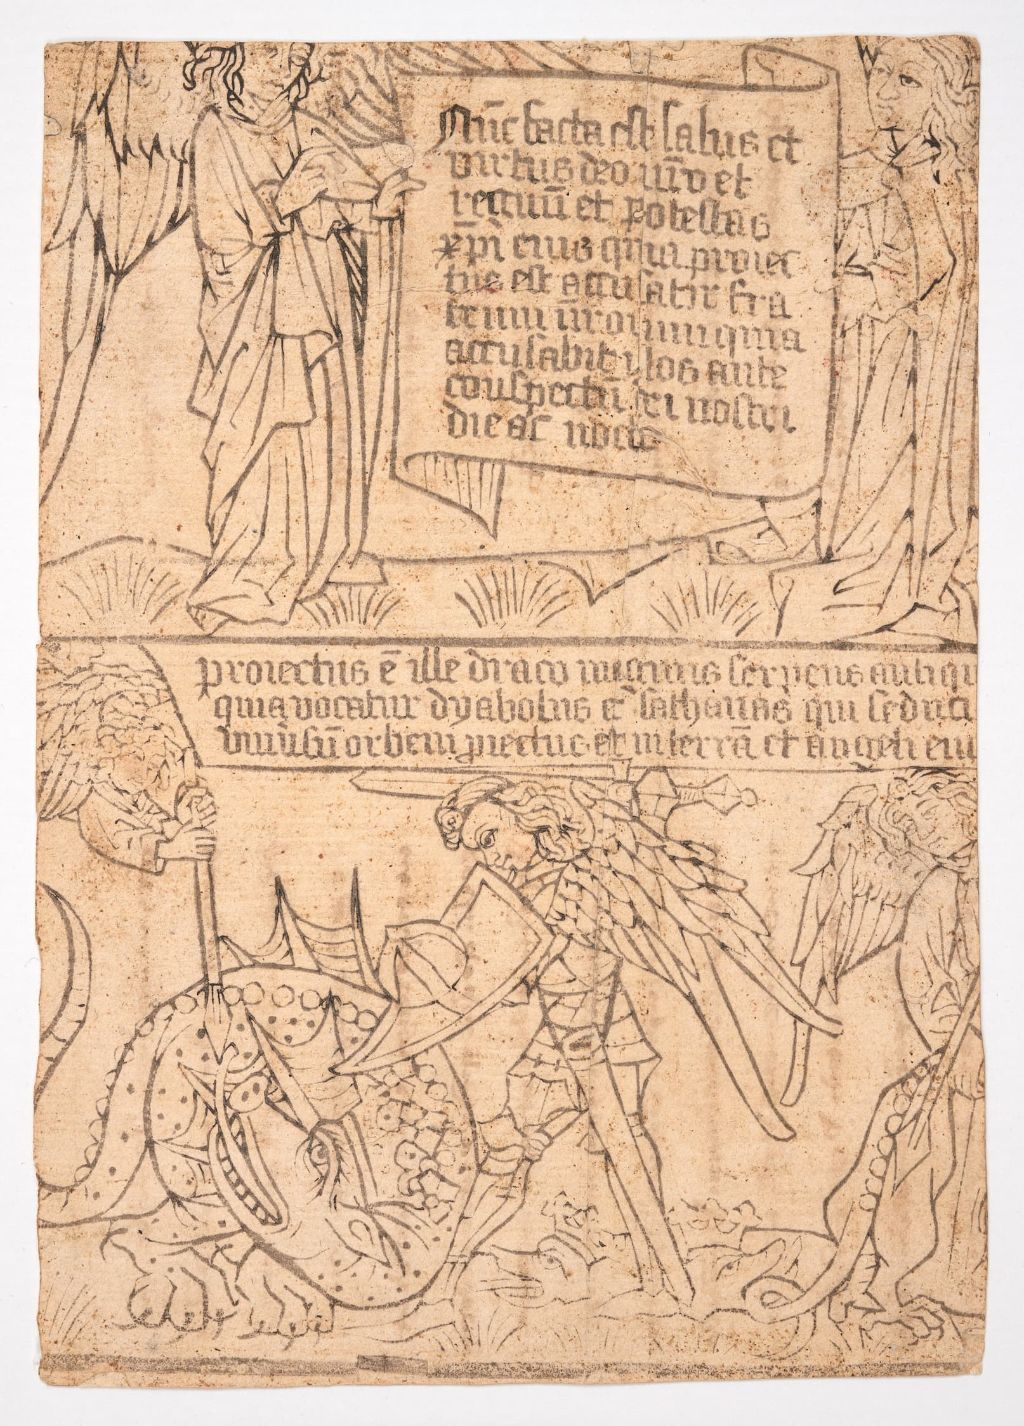 Nūc facta est salus et
virtus deo nr̄o et
regnū et potestas
xp̄i eius quia proiec
tus est accusatir fra
trum nr̄orum quia
accusabit illos ante
conspectū dei nostri
die ac nocte
proiectus ē ille draco magnus serpens antiqu
qui vocatur dyabolus et sathanas qui seduci
vniūsū orbem piectus est in terrā et angeli eiu